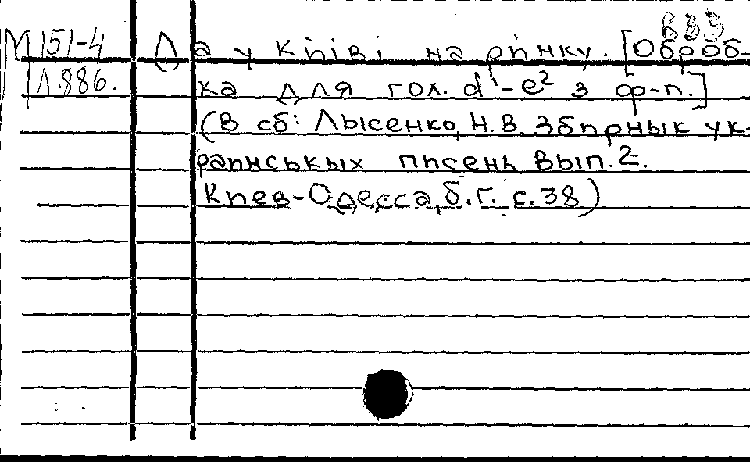 ВВЭ
М 151-4 Да у Києві на ринку. [Оброб-
Л.886. ка для гол. d¹-e² з ф-п.]
(В сб: Лысенко, Н.В. Збирнык ук-
раинськых писень Вып. 2.
Киев-Одесса, б.г. с.38)